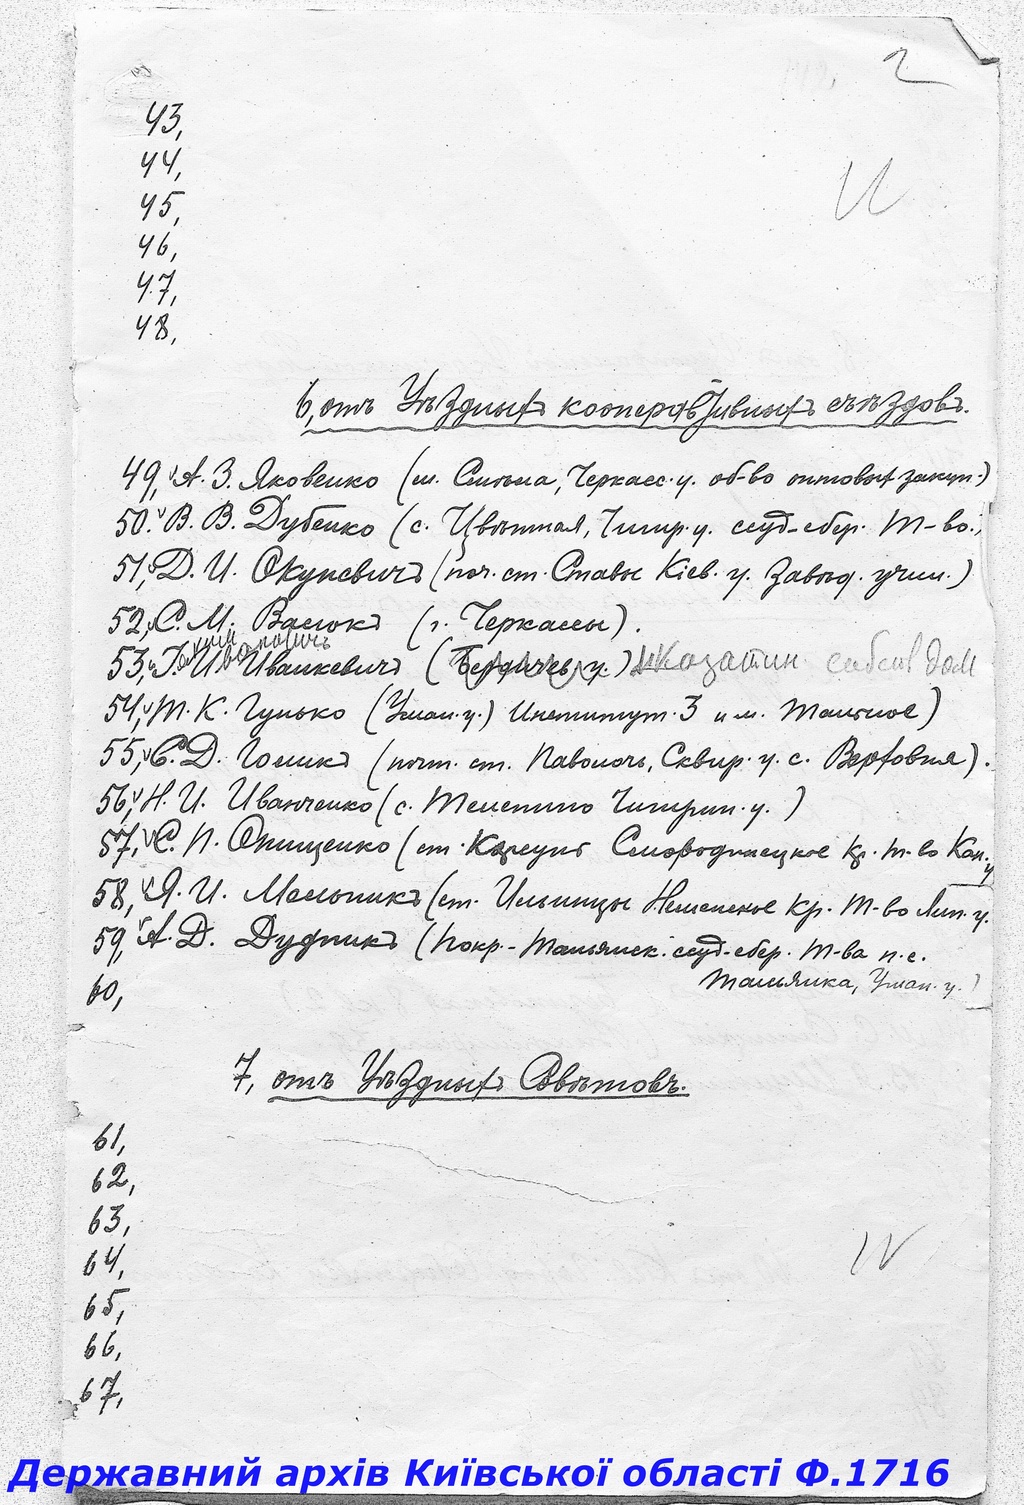 2
43,
44,
45,
46,
47,
48,
6, отъ Уѣздныхъ кооперативныхъ съѣздовъ.
49, А. З. Яковенко (м. Смѣла, Черкасс. у. об-во оптовых закуп.)
50. В. В. Дубенко (с. Цвѣтная, Чигир. у. ссуд-сбер. т-во.,
51, Д. И. Окуневичъ (поч. ст. Ставы Кіев. у. Завѣд. учил.)
52, С. М. Васюкъ (г. Черкассы).
Ивановичъ
53, Г. И. Иванкевичъ (Бердичев. у.) Козатин собств дом
54, Т. К. Гунько (Уман. у.) Институт. 3 и м. Тальное)
55, С. Д. Голикъ (почт. ст. Паволочь, Сквир. у. с. Верховня).
56, Н. И. Иванченко (с. Телепино Чигирин. у. )
57, С. П. Онищенко (ст. Корсунь Смородинецкое кр. т-во Кан. у
58, Я. И. Мельникъ (ст. Ильинцы Неменское кр. т-во Лип. у.
59, А. Д. Дудникъ (покр.-Тальянск. ссуд-сбер. т-ва п. с.
Тальянка, Уман. у.)
60,
7, отъ Уѣздныхъ Совѣтовъ.
61,
62,
63,
64,
65,
66,
67,
Державний архів Київської області Ф.1716